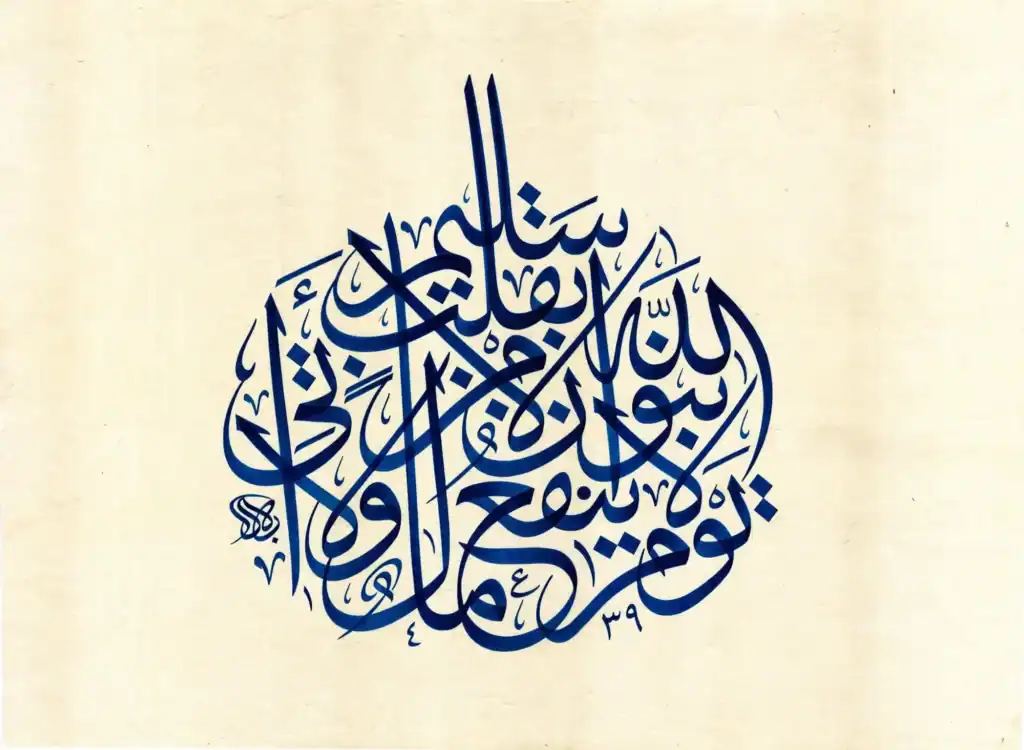 يوم لا ينفع مال ولا بنون إلا من أتى الله بقلب سليم
١٤٣٩